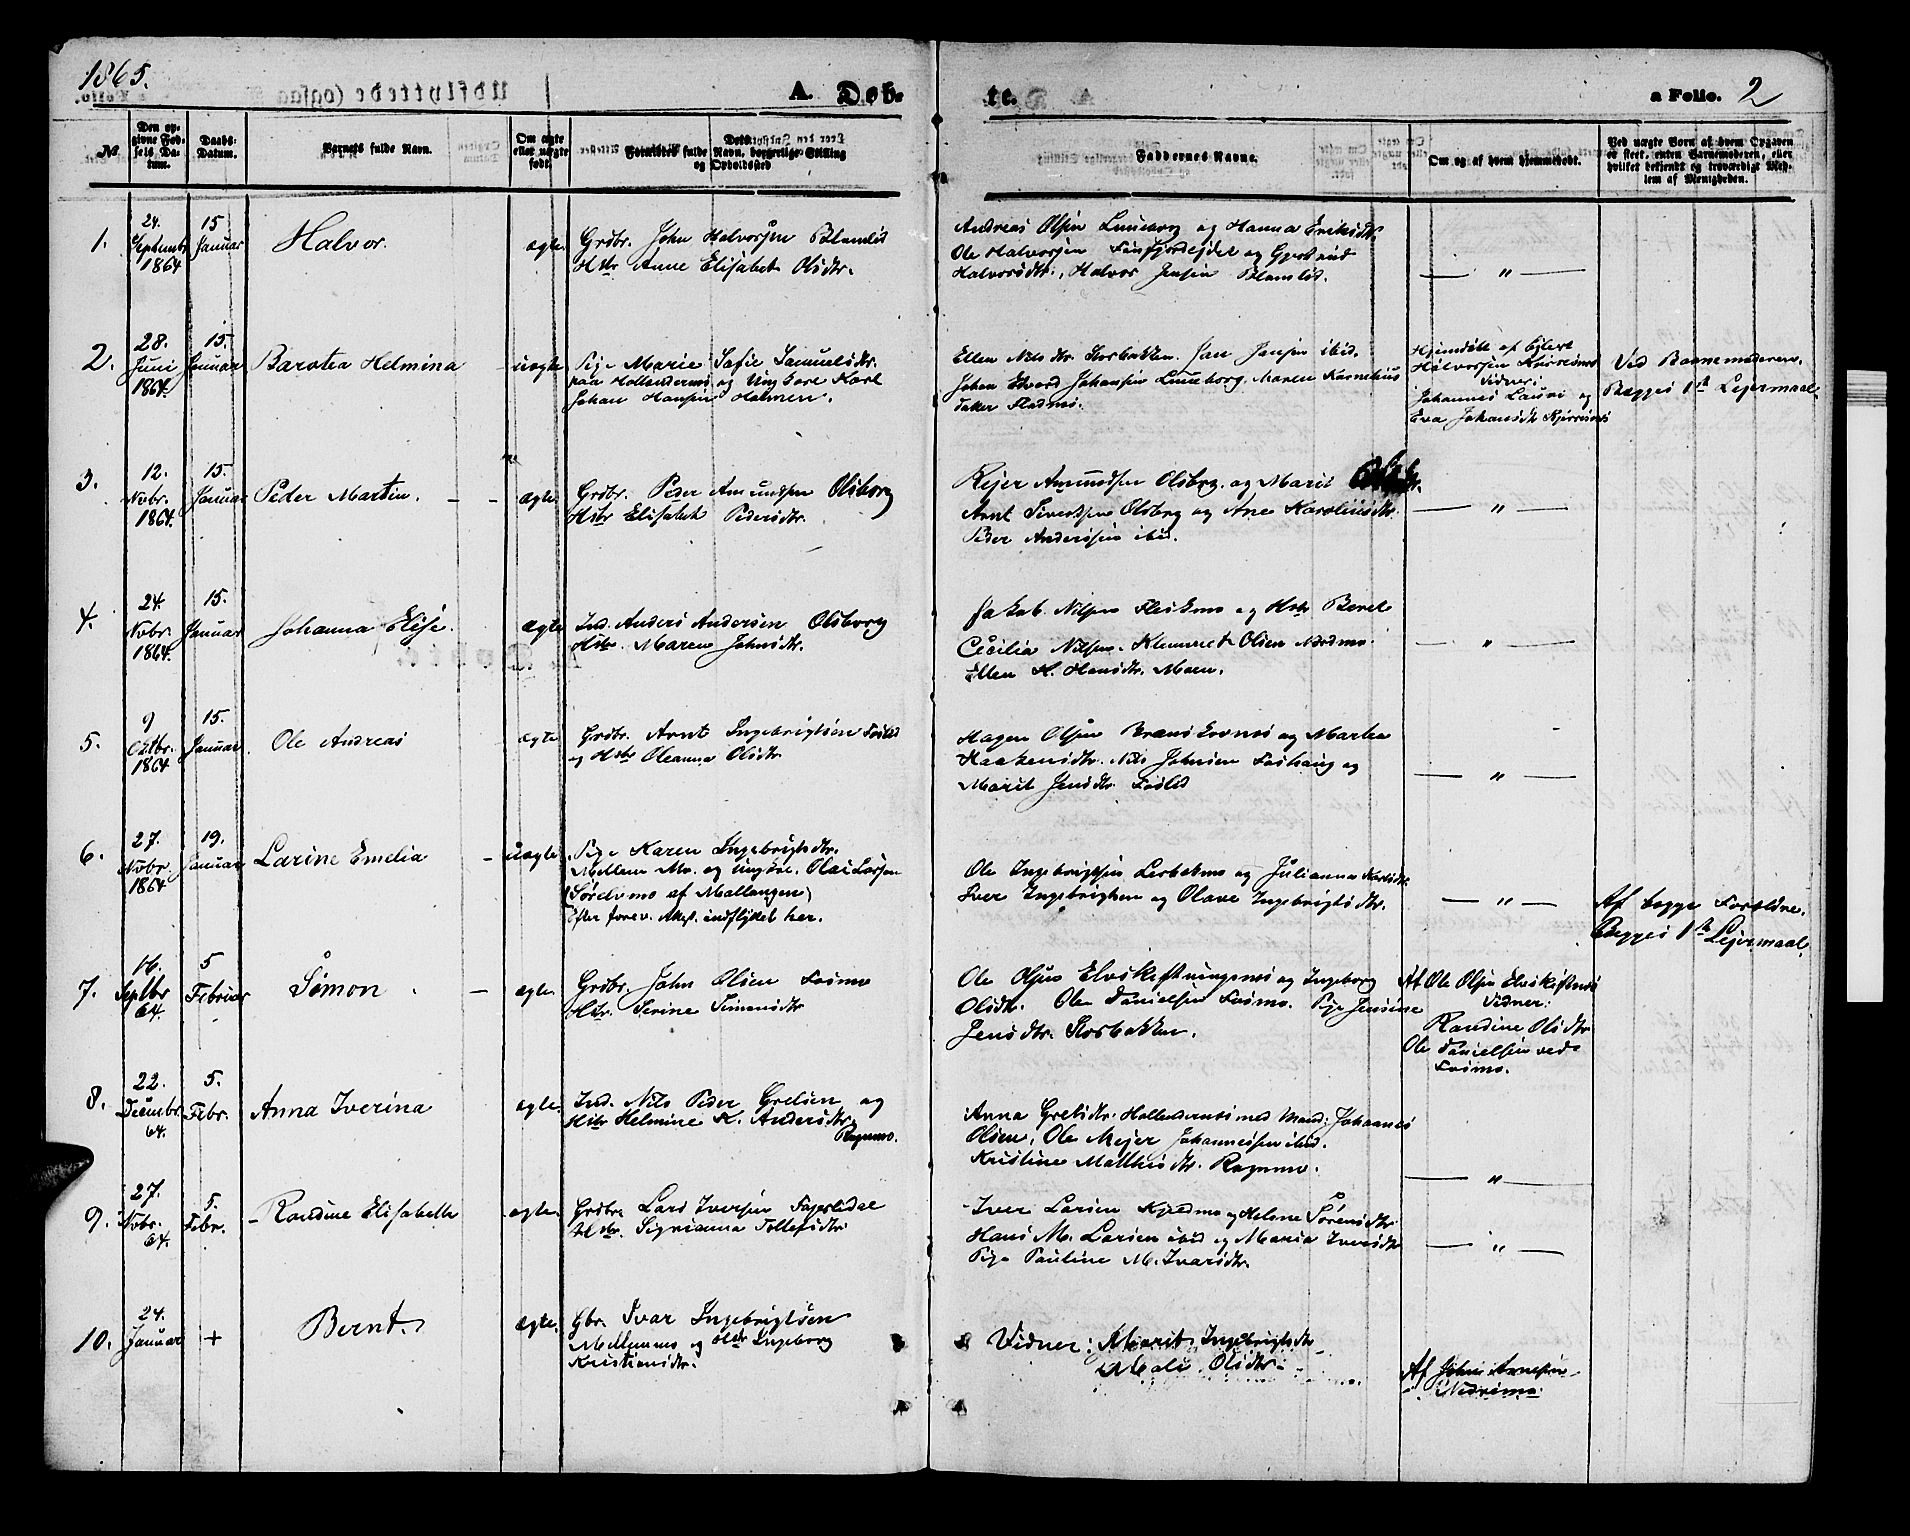 1865.
A. Døb-
te.
a Folio. 2
No.
Den op-
givne Fød-
sels Da-
tum.
Daabs-
Datum.
Barnets fulde Navn.
Om ægte
eller uægte
født.
Forældres fulde Navn, borgerlige Stilling
og Opholdssted
Faddernes Navne.
Om og af hvem hjemmedøbt.
Ved uægte Børn af hvem Opgaven
er skeet, enten Barnemoderen, eller
hvilket bekjendt og troværdigt Med-
lem af Menigheden.
1.
24.
Septembr
1864
15
Januar
Halvor.
ægte.
Grdbr. John Halvorsen
Hstr Anne Elisabet Olsdtr.
Andreas Olsen Luneborg og Hanna Eriksdtr.
Ole Halvorsen Finfjordeidet og
Halvorsdtr., Halvor Jensen
— " —
2.
28.
Juni
1864
15.
Januar
Barotea Helmina
uægte
Pige Marie Sofie Samuelsdtr.
paa Hollendernes og Ungkarl Karl
Johan Hansen Holmen.
Ellen Nilsdtr. Storbakken. Jan Jansen ibid.
Johan Edvard Johansen Luneborg. Maren Kornelius
Fladmo.
Hjemdøbt af
Halvorsen
Vidner:
Johannes og
Eva Johansdtr
Ved Barnemoderen.
Begges 1st Lejermaal
3.
12.
Nvbr.
1864.
15.
Januar
Peder Martin.
ægte.
Grdbr. Peder Amundsen Olsborg
Hstr Elisabet Pedersdtr.
Rejer Amundsen Olsborg. og Marit
Arnt Sivertsen Olsborg og Ane Karolinsdtr.
Peder Andersen ibid.
— " —
4.
24.
Nvbr.
1864.
15.
Januar
Johanna Elise.
ægte
Ind. Anders Andersen Olsborg
Hstr. Maren Johnsdtr.
Jakob Nilsen Fleskmo og Hstr Beret
Cecilia Nilsen. Klemmet Olsen Nordmo.
Ellen H. Hansdtr. Moen.
— " —
5.
9
Oktbr.
1864
15.
Januar.
Ole Andreas
ægte
Grdbr. Arnt Ingebrigtsen Foslid
og Hstr Oleanna Olsdtr.
Hagen Olsen og Martea
Haakensdtr. Nils Johnsen Foshaug og
Marit Jensdtr. Foslid
— " —
6.
27.
Nvbr.
1864
19.
Januar
Larine Emelia
uægte.
Pige Karen Ingebrigtsdtr.
Mellem Mo. og Ungkar. Olai Larsen
(Sørdumo af Mallangen)
Efter forev. indflyttet her.
Ole Ingebrigtsen og Julianna
Iver Ingebrigtsen og Olave Ingebrigtsdtr.
— " —
Af begge Forældre.
Begges 1st Lejermaal
7.
16.
Septbr
64.
5
Februar
Simon
ægte.
Grdbr. John Olsen Fosmo
Hstr. Serine Simonsdtr
Ole Olsen og Ingeborg
Olsdtr. Ole Danielsen Fosmo. Pige Jensine
Jensdtr. Storbakken.
Af Ole Olsen
Vidner:
Randine Olsdtr
Ole Danielsen ved
Fosmo.
8.
22.
Decembr.
64.
5.
Febr.
Anna Iverina
ægte.
Ind. Nils Peder Grelsen og
Hstr Helmine K. Andersdtr
Ragnmo.
Anna Gretsdtr. Hollendernes med Mand: Johannes
Olsen, Ole Mejer Johannessen ibid.
Kristine Matthisdtr. Ragnmo.
— " —
9.
27.
Nvbr.
64.
5.
Febr.
Randine Elisabeth
ægte.
Grdbr. Lars Iversen Fagerlidal
Hstr. Sigrianna Tollefsdtr.
Iver Larsen Kjedmo og Helene Sørensdtr.
Hans M. Larsen ibid og Maria Iversdtr.
Pige Pauline M. Ivarsdtr.
— " —
10.
24.
Januar
+
Bernt.
ægte.
Gbr. Ivar Ingebrigtsen
Mellemmo og Hstr Ingeborg
Kristiansdtr.
Vidner: Marit Ingebrigtsdtr
Mali Olsdtr.
Af John Arnesen